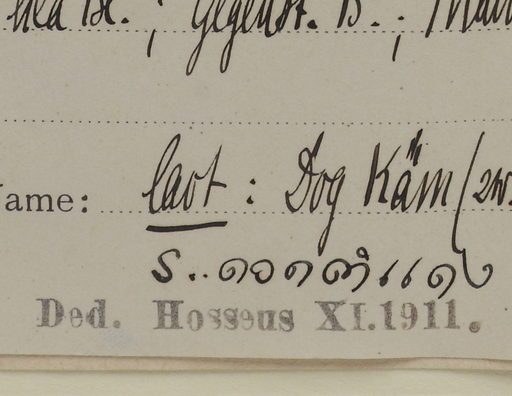 Bl. ; Gegenst. B. ;
Name: laot : Dog Käm (zw.
ร..ดอกคำแดง
Ded. Hosseus XI.1911.